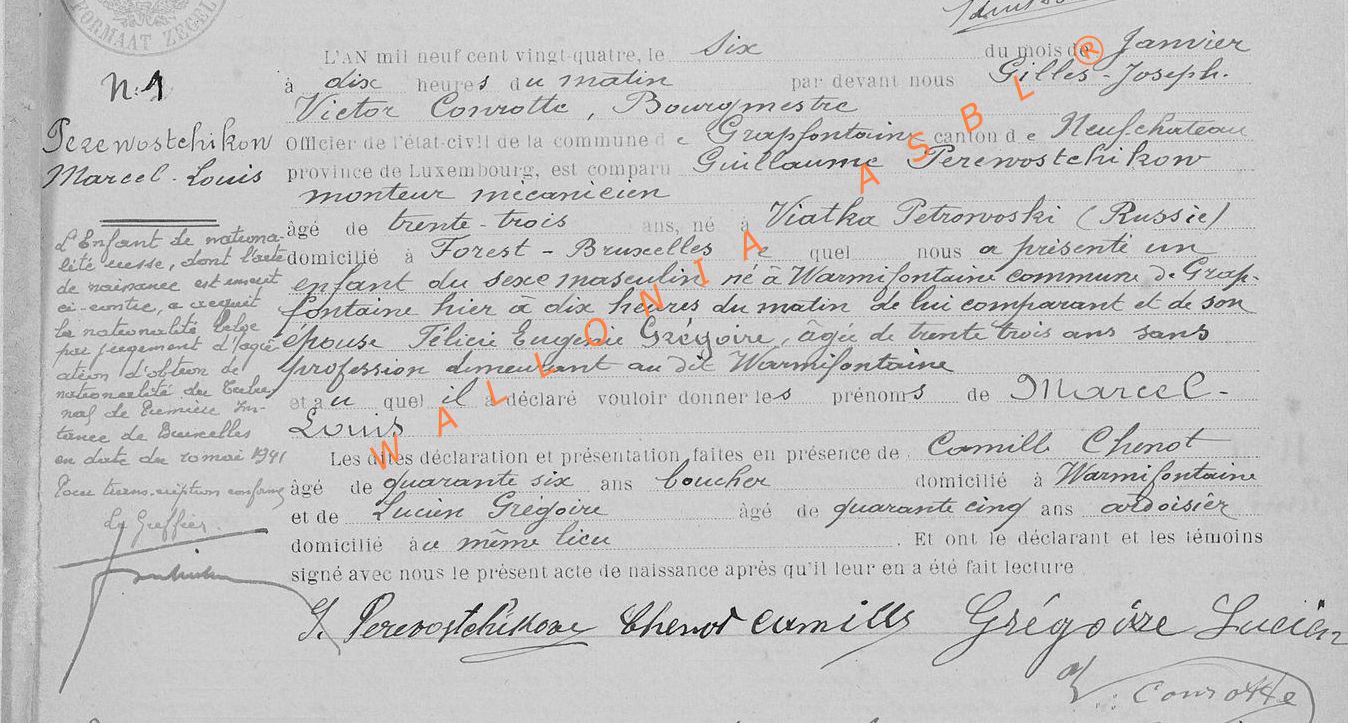 FORMAAT ZEGEL
L'AN mil neuf cent vingt-quatre, le six du mois de Janvier
N. 1
à dix heures du matin par devant nous Gilles-Joseph.
Victor Conrotte, Bourgmestre
Perewostchikow
Officier de l'état-civil de la commune de Grapfontaine canton de Neufchateau
Marcel-Louis
province de Luxembourg, est comparu Guillaume Perewostchikow
monteur mécanicien
âgé de trente-trois ans, né à Viatka Petrowoski (Russie)
domicilié à Forest-Bruxelles le quel nous a présenté un
enfant du sexe masculin né à Warmifontaine commune de Grap-
fontaine hier à dix heures du matin de lui comparant et de son
épouse Félicie Eugénie Grégoire, âgée de trente trois ans sans
profession demeurant au dit Warmifontaine
et au quel il a déclaré vouloir donner les prénoms de Marcel-
Louis
L'Enfant de nationa-
lité russe, dont l'acte
de naissance est inscrit
ci-contre, a acquit
la nationalité belge
par jugement d'agré-
ation d'option de
nationalité du Tribu
nal de Première Ins-
tance de Bruxelles
en date du 10 mai 1941
Pour transcription conforme
Le Greffier.
Les dites déclaration et présentation faites en présence de Camille Chenot
âgé de quarante six ans boucher domicilié à Warmifontaine
et de Lucien Grégoire âgé de quarante cinq ans ardoisier
domicilié au même lieu . Et ont le déclarant et les témoins
signé avec nous le présent acte de naissance après qu'il leur en a été fait lecture
G. Perewostchikow Chenot Camille Grégoire Lucien
V. Conrotte
WALLONIA ASBL ®